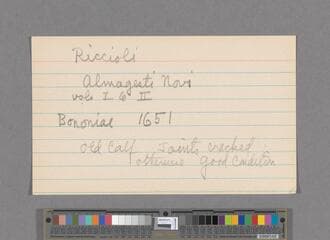 Riccioli
Almagesti Novi
vols I & II
Bononiae 1651
Old Calf Joints cracked;
otherwise Good Condition